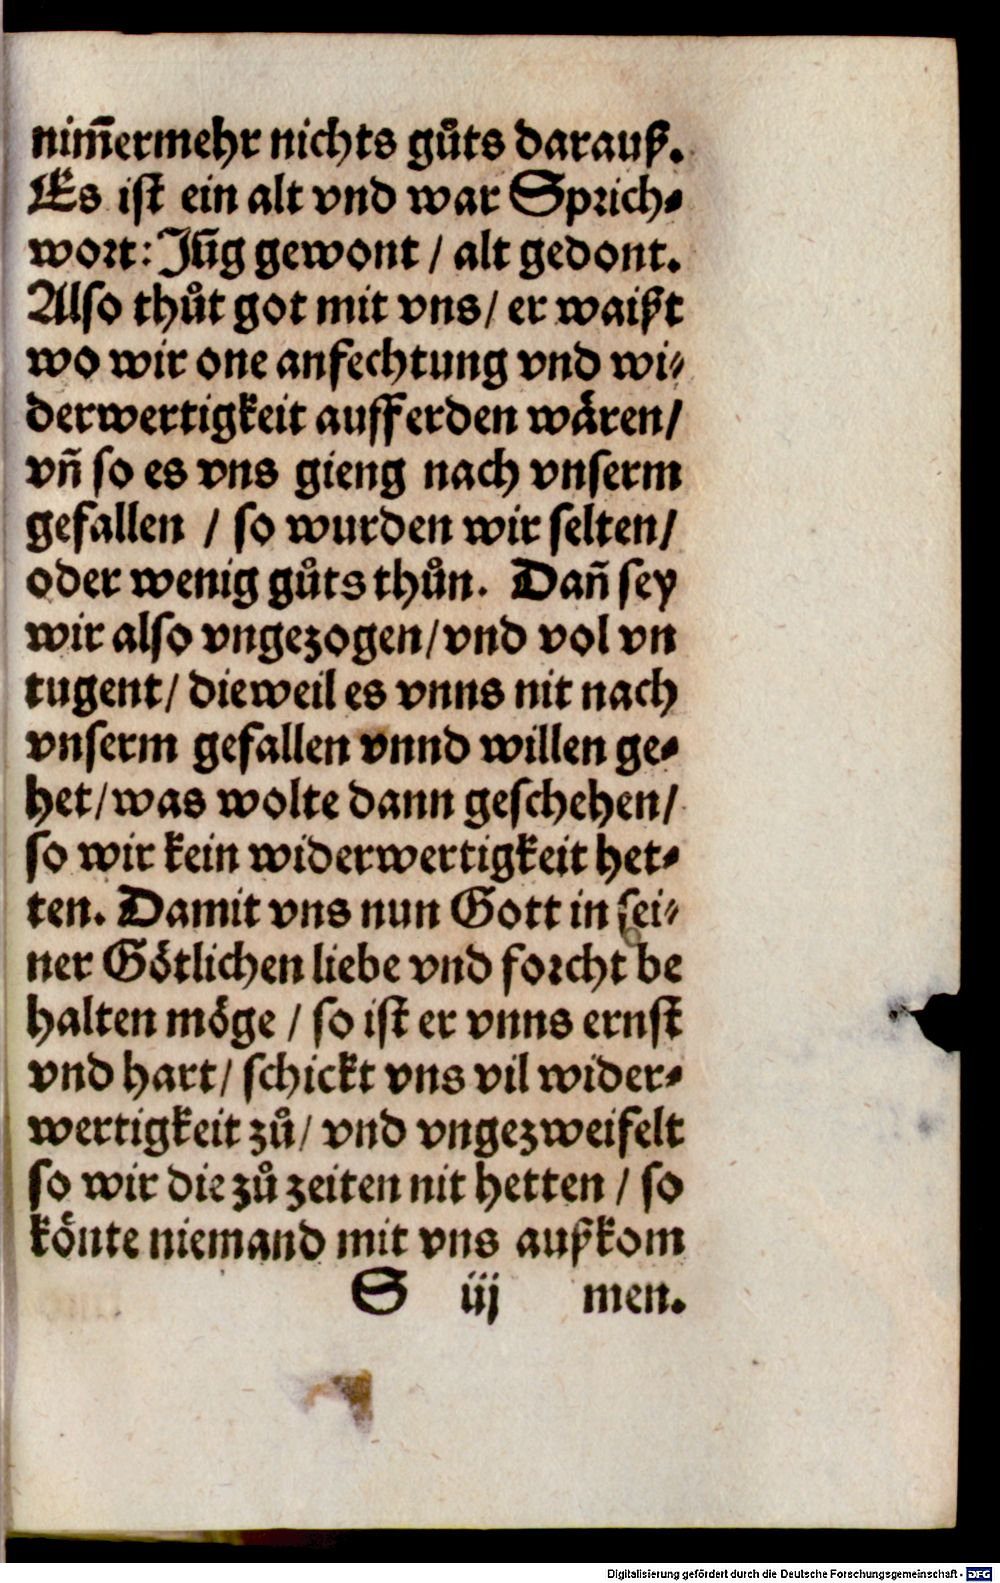 nim̃ermehr nichts gůts darauß.
Es ist ein alt vnd war Sprich-
wort: Jũg gewont / alt gedont.
Also thůt got mit vns / er waißt
wo wir one anfechtung vnd wi-
derwertigkeit aufferden wären /
vñ so es vns gieng nach vnserm
gefallen / so wurden wir selten /
oder wenig gůts thůn. Dañ sey
wir also vngezogen / vnd vol vn
tugent / dieweil es vnns nit nach
vnserm gefallen vnnd willen ge-
het / was wolte dann geschehen /
so wir kein widerwertigkeit het-
ten. Damit vns nun Gott in sei-
ner Götlichen liebe vnd forcht be
halten möge / so ist er vnns ernst
vnd hart / schickt vns vil wider-
wertigkeit zů / vnd vngezweifelt
so wir die zů zeiten nit hetten / so
könte niemand mit vns außkom
S iij men.
Digitalisierung gefördert durch die Deutsche Forschungsgemeinschaft - DFG